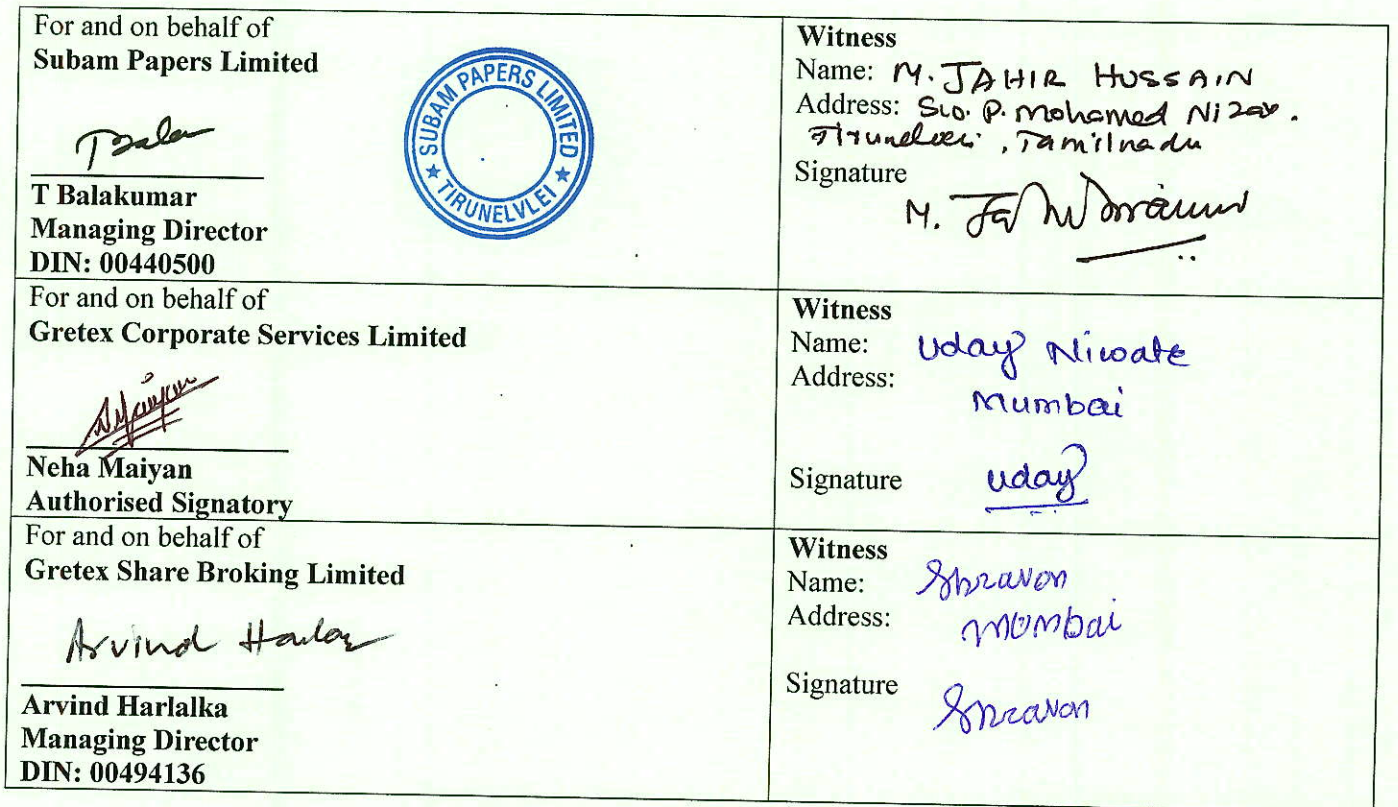 For and on behalf of
Subam Papers Limited
SUBAM PAPERS LIMITED
★ TIRUNELVLEI ★
T Balakumar
Managing Director
DIN: 00440500
Witness
Name: M. JAHIR HUSSAIN
Address: S/o. P. Mohamed Nizar.
Tirunelveli, Tamilnadu
Signature
For and on behalf of
Gretex Corporate Services Limited
Neha Maiyan
Authorised Signatory
Witness
Name: Uday Niwate
Address:
Mumbai
Signature uday
For and on behalf of
Gretex Share Broking Limited
Arvind
Arvind Harlalka
Managing Director
DIN: 00494136
Witness
Name: Shravan
Address:
Mumbai
Signature
Shravan